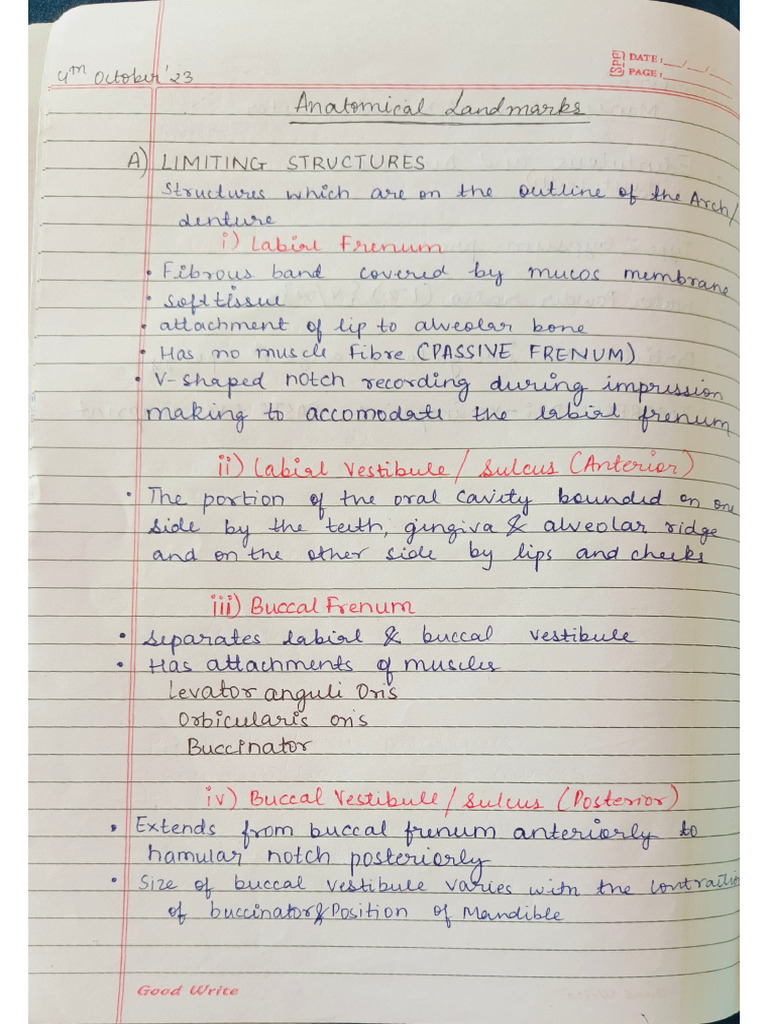 4th October '23
SPP DATE: __/__/__
PAGE:
Anatomical Landmarks
A) LIMITING STRUCTURES
Structures which are on the outline of the Arch/
denture
i) Labial Frenum
• Fibrous band covered by mucos membrane
• soft tissue
• attachment of lip to alveolar bone
• Has no muscle Fibre (PASSIVE FRENUM)
• V-shaped notch recording during impression
making to accomodate the labial frenum
ii) Labial Vestibule / Sulcus (Anterior)
• The portion of the oral cavity bounded on one
side by the teeth, gingiva & alveolar ridge
and on the other side by lips and cheeks
iii) Buccal Frenum
• Separates labial & buccal vestibule
• Has attachments of muscles
Levator anguli Oris
Orbicularis oris
Buccinator
iv) Buccal Vestibule / Sulcus (Posterior)
• Extends from buccal frenum anteriorly to
hamular notch posteriorly
• Size of buccal vestibule varies with the contraction
of buccinator & Position of Mandible
Good Write